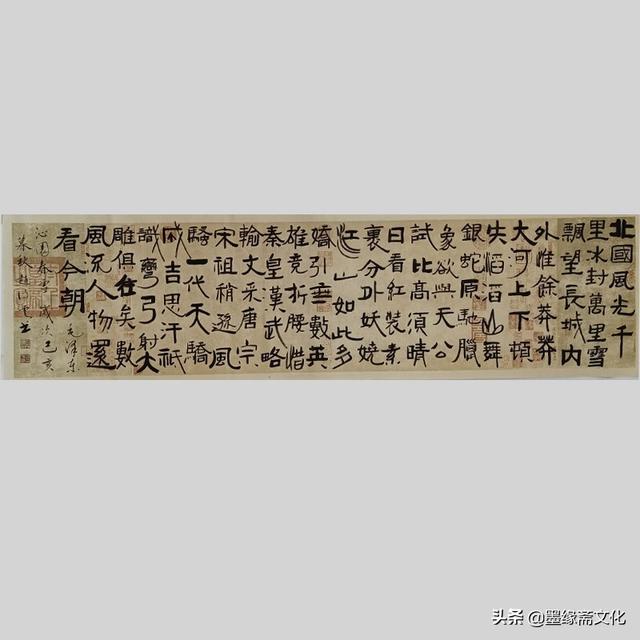 北國風光千
里冰封萬里雪
飄望長城内
外惟餘莽莽
大河上下頓
失滔滔山舞
銀蛇原馳臘
象欲與天公
試比高須晴
日看紅裝素
裹分外妖嬈
江山如此多
嬌引無數英
雄竞折腰惜
秦皇漢武略
輸文采唐宗
宋祖稍遜風
騷一代天驕
成吉思汗祇
識彎弓射大
雕俱往矣數
風流人物還
看今朝
毛泽东
沁園春雪歲次己亥
暮秋書
头条 @墨缘斋文化